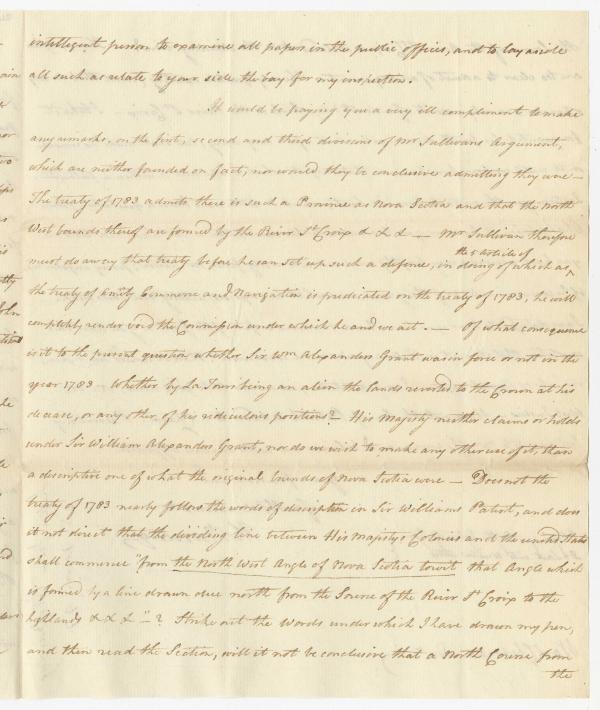 intelligent person to examine all papers in the public offices, and to lay aside
all such as relate to your side the bay for my inspection.
It would be paying you a very ill compliment to make
any remarks, on the first, second and third divisions of Mr Sullivans Argument,
which are neither founded on fact, nor would they be conclusive admitting they were —
The treaty of 1783 admits there is such a Province as Nova Scotia and that the North
West bounds thereof are formed by the River St Croix & & & — Mr Sullivan therefore
must do away that treaty before he can set up such a defence, in doing of which as
the 5 Article of
the treaty of Amity Commerce and Navigation is predicated on the treaty of 1783, he will
completely render void the Commission under which he and we act. — Of what consequence
is it to the present question whether Sir Wm Alexanders Grant was in force or not in the
year 1783 — Whether by La Tours being an alien the lands reverted to the Crown at his
decease, or any other of his ridiculous positions? — His Majesty neither claims or holds
under Sir William Alexanders Grant, nor do we wish to make any other use of it, than
a descriptive one of what the original bounds of Nova Scotia were — Does not the
treaty of 1783 nearly follow the words of description in Sir Williams Patent, and does
it not direct that the dividing line between His Majestys Colonies and the United States
shall commence "from the North West Angle of Nova Scotia towit that Angle which
is formed by a line drawn due north from the Source of the River St Croix to the
highlands & & & "—? Strike out the words under which I have drawn my pen,
and then read the Section, will it not be conclusive that a North Course from
the